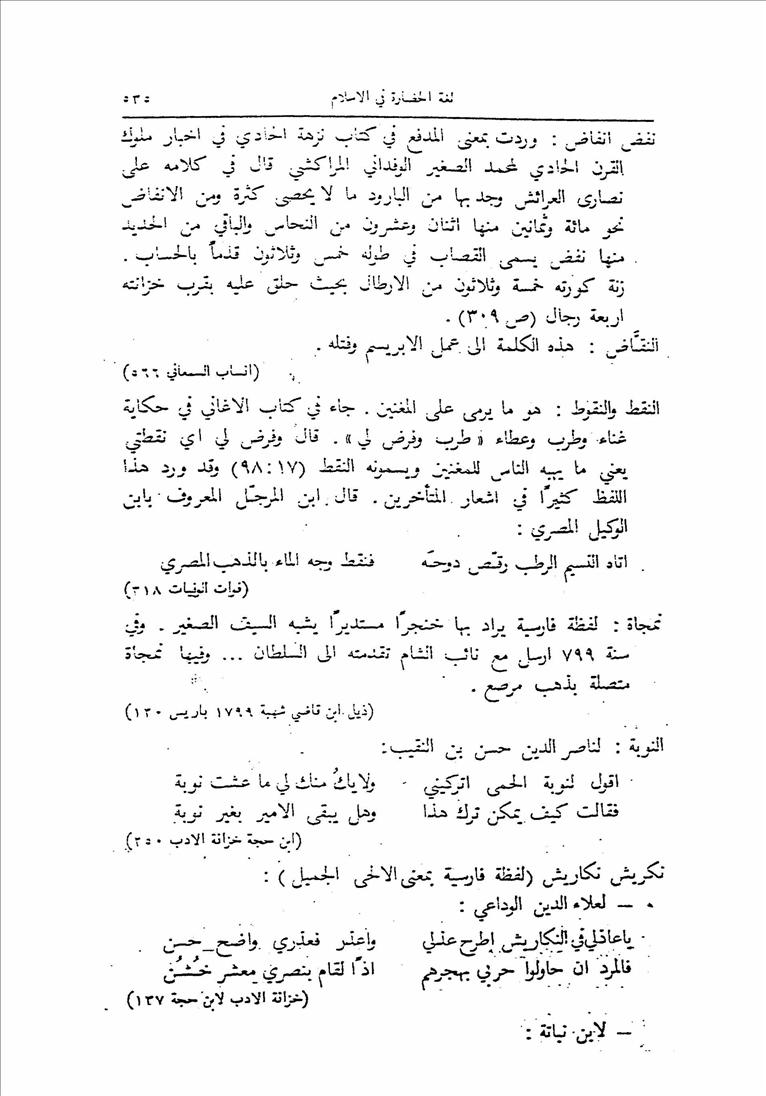 لغة الحضارة في الاسلام ٥٣٥
نفض انفاض : وردت بمعنى المدفع في كتاب نزهة الحادي في اخبار ملوك
القرن الحادي لمحمد الصغير الوفداني المراكشي قال في كلامه على
نصارى العرائش وجد بها من البارود ما لا يحصى كثرة ومن الانفاض
نحو مائة وثمانين منها اثنان وعشرون من النحاس والباقي من الحديد
منها نفض يسمى القصاب في طوله خمس وثلاثون قدماً بالحساب .
زنة كورته خمسة وثلاثون من الارطال بحيث حلق عليه بقرب خزانته
اربعة رجال (ص ٣٠٩) .
النقَّاض : هذه الكلمة الى عمل الابريسم وفتله .
(انساب السمعاني ٥٦٦)
النقط والنقوط : هو ما يرمى على المغنين . جاء في كتاب الاغاني في حكاية
غناء وطرب وعطاء « طرب وفرض لي » . قال وفرض لي اي نقطتي
يعني ما يهبه الناس للمغنين ويسمونه النقط (١٧ : ٩٨) وقد ورد هذا
اللفظ كثيرًا في اشعار المتأخرين . قال ابن المرجّل المعروف بابن
الوكيل المصري :
اتاه النسيم الرطب رقّص دوحَه فنقط وجه الماء بالذهب المصري
(فوات الوفيات ٣١٨)
نمجاة : لفظة فارسية يراد بها خنجرًا مستديرًا يشبه السيف الصغير . وفي
سنة ٧٩٩ ارسل مع نائب الشام تقدمته الى السلطان ... وفيها نمجاة
متصلة بذهب مرصع .
(ذيل ابن قاضي شهبة ١٧٩٩ باريس ١٣٠)
النوبة : لناصر الدين حسن بن النقيب:
اقول لنوبة الحمى اتركيني ولا يكُ منك لي ما عشت نوبة
فقالت كيف يمكن ترك هذا وهل يبقى الامير بغير نوبة
(ابن حجة خزانة الادب ٢٥٠)
نكريش نكاريش (لفظة فارسية بمعنى الالحى الجميل ) :
— لعلاء الدين الوداعي :
يا عاذلي في النكاريش إطرح عذلي واعذر فعذري واضح حسن
فالمرد ان حاولوا حربي بهجرهم اذًا لقام بنصري معشر خُشُنُ
(خزانة الادب لابن حجة ١٣٧)
— لابن نباتة :